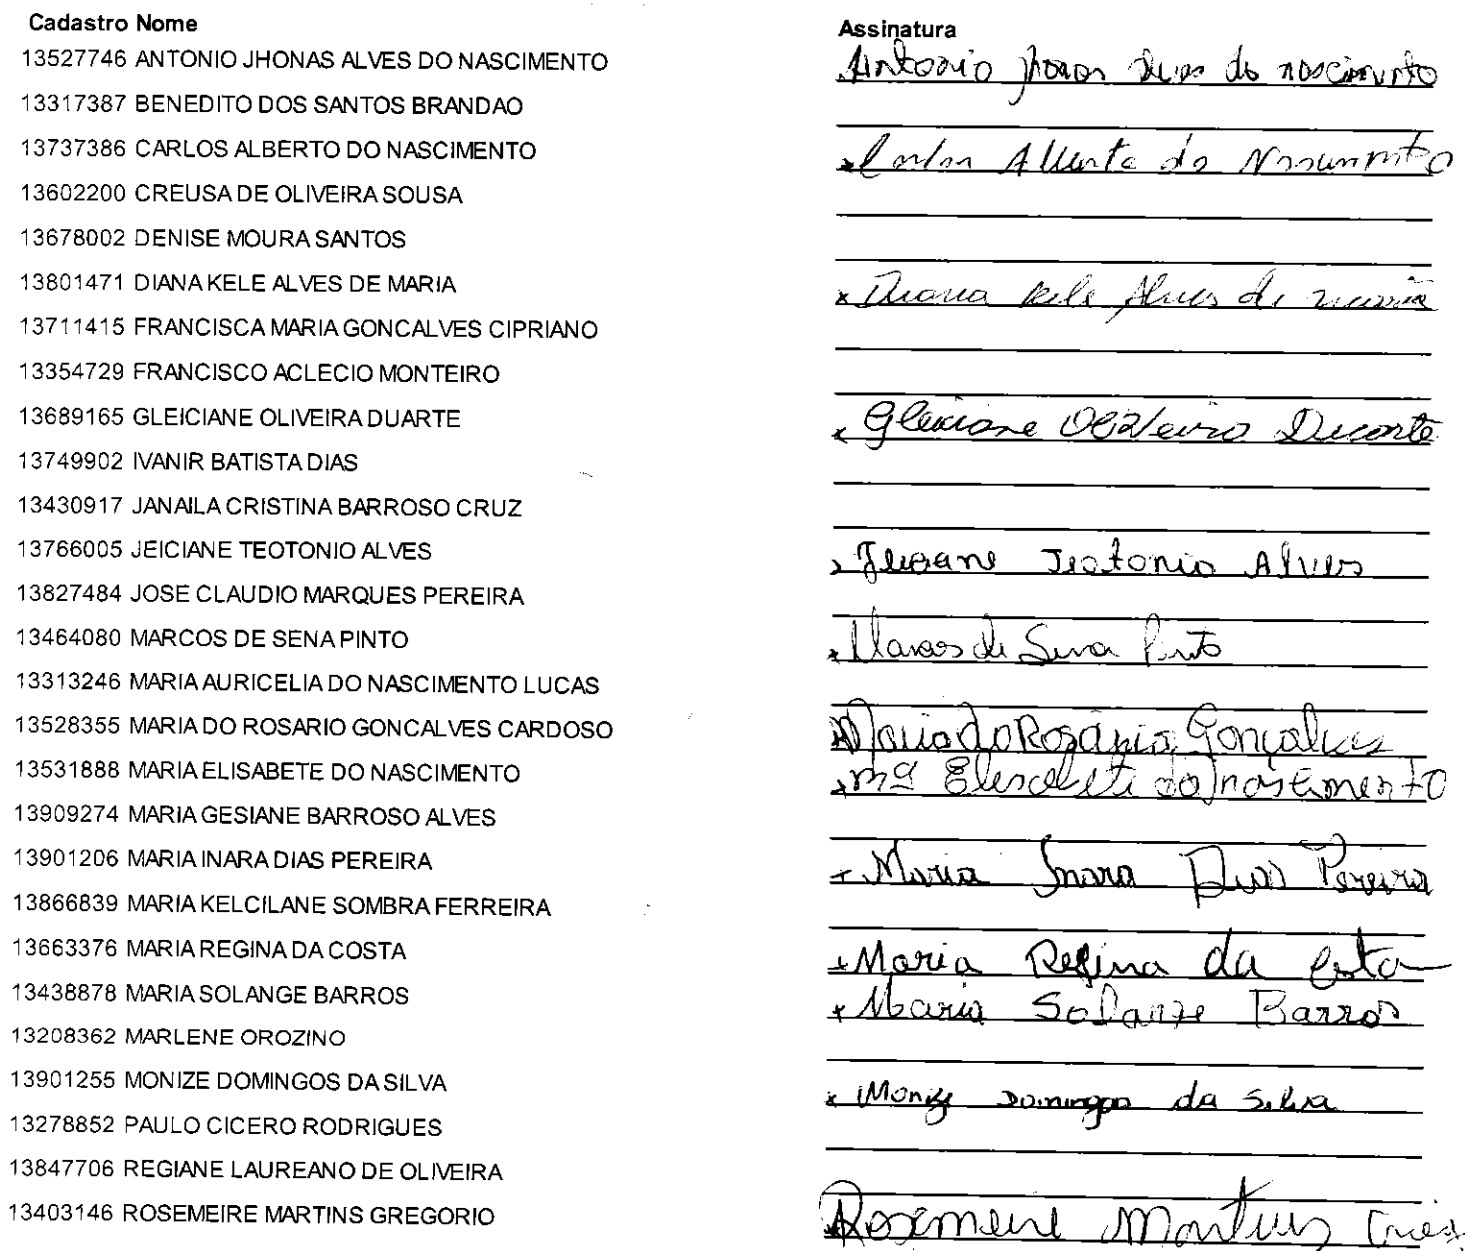 Cadastro Nome Assinatura
13527746 ANTONIO JHONAS ALVES DO NASCIMENTO Antonio jhonas Alves do nascimento
13317387 BENEDITO DOS SANTOS BRANDAO
13737386 CARLOS ALBERTO DO NASCIMENTO x Carlos Alberto do Nascimento
13602200 CREUSA DE OLIVEIRA SOUSA
13678002 DENISE MOURA SANTOS
13801471 DIANA KELE ALVES DE MARIA x Diana kele Alves de maria
13711415 FRANCISCA MARIA GONCALVES CIPRIANO
13354729 FRANCISCO ACLECIO MONTEIRO
13689165 GLEICIANE OLIVEIRA DUARTE x Gleiciane Oliveira Duarte
13749902 IVANIR BATISTA DIAS
13430917 JANAILA CRISTINA BARROSO CRUZ
13766005 JEICIANE TEOTONIO ALVES x Jeiciane Teotonio Alves
13827484 JOSE CLAUDIO MARQUES PEREIRA
13464080 MARCOS DE SENA PINTO x Marcos de Sena Pinto
13313246 MARIA AURICELIA DO NASCIMENTO LUCAS
13528355 MARIA DO ROSARIO GONCALVES CARDOSO Maria do Rosário Gonçalves
13531888 MARIA ELISABETE DO NASCIMENTO x mª Elisabete do nascimento
13909274 MARIA GESIANE BARROSO ALVES
13901206 MARIA INARA DIAS PEREIRA x Maria Inara Dias Pereira
13866839 MARIA KELCILANE SOMBRA FERREIRA
13663376 MARIA REGINA DA COSTA x Maria Regina da Costa
13438878 MARIA SOLANGE BARROS x Maria Solange Barros
13208362 MARLENE OROZINO
13901255 MONIZE DOMINGOS DA SILVA x Monize Domingos da Silva
13278852 PAULO CICERO RODRIGUES
13847706 REGIANE LAUREANO DE OLIVEIRA
13403146 ROSEMEIRE MARTINS GREGORIO Rosemeire Martins